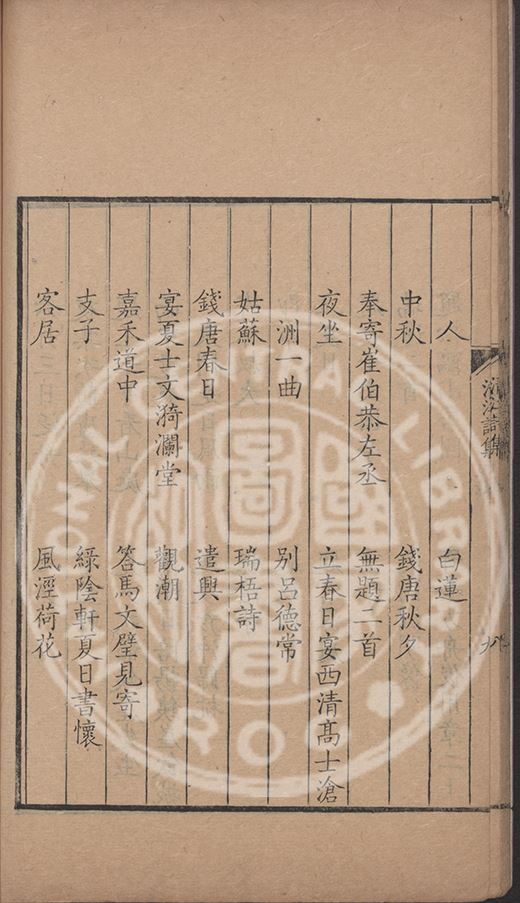 人　白蓮
中秋　錢唐秋夕
奉寄崔伯恭左丞　無題二首
夜坐　立春日宴西清髙士滄
洲一曲　别吕德常
姑蘇　瑞梧詩
錢唐春日　遣興
宴夏士文漪瀾堂　觀潮
嘉禾道中　答馬文璧見寄
支子　綠陰軒夏日書懷
客居　風涇荷花